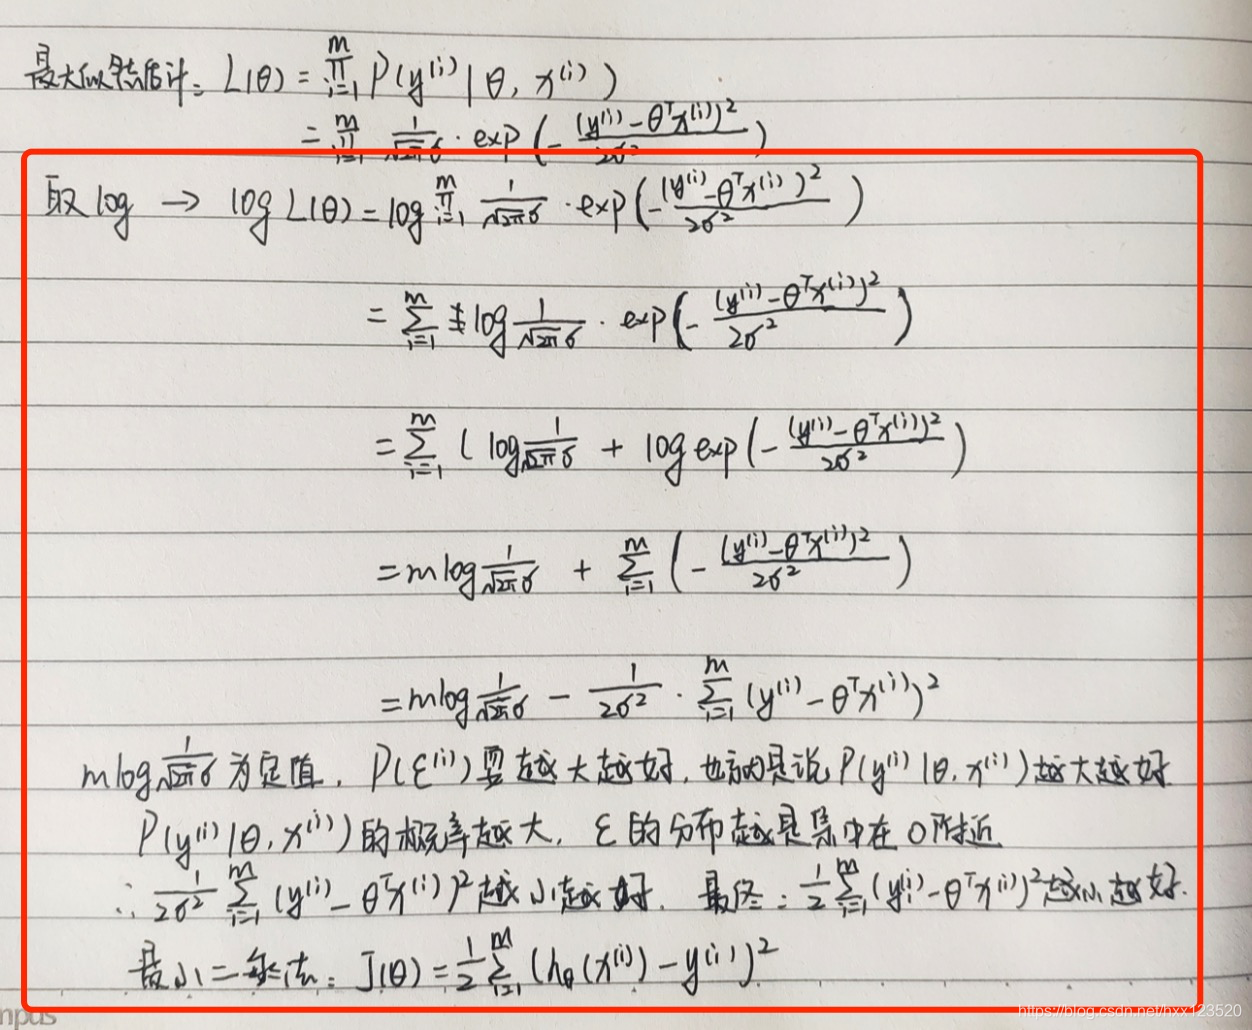 最大似然估计: L(θ) = ∏_{i=1}^{m} P(y^{(i)} | θ, x^{(i)})
= ∏_{i=1}^{m} \frac{1}{\sqrt{2π}σ} · exp(-\frac{(y^{(i)} - θ^T x^{(i)})^2}{2σ^2})
取 log → log L(θ) = log ∏_{i=1}^{m} \frac{1}{\sqrt{2π}σ} · exp(-\frac{(y^{(i)} - θ^T x^{(i)})^2}{2σ^2})
= ∑_{i=1}^{m} log \frac{1}{\sqrt{2π}σ} · exp(-\frac{(y^{(i)} - θ^T x^{(i)})^2}{2σ^2})
= ∑_{i=1}^{m} ( log \frac{1}{\sqrt{2π}σ} + log exp(-\frac{(y^{(i)} - θ^T x^{(i)})^2}{2σ^2})
= m log \frac{1}{\sqrt{2π}σ} + ∑_{i=1}^{m} (-\frac{(y^{(i)} - θ^T x^{(i)})^2}{2σ^2})
= m log \frac{1}{\sqrt{2π}σ} - \frac{1}{2σ^2} · ∑_{i=1}^{m} (y^{(i)} - θ^T x^{(i)})^2
m log \frac{1}{\sqrt{2π}σ} 为定值, P(ε^{(i)}) 要越大越好, 也就是说 P(y^{(i)} | θ, x^{(i)}) 越大越好
P(y^{(i)} | θ, x^{(i)}) 的概率越大, ε 的分布越是集中在 0 附近
∴ \frac{1}{2σ^2} ∑_{i=1}^{m} (y^{(i)} - θ^T x^{(i)})^2 越小越好. 最终: \frac{1}{2} ∑_{i=1}^{m} (y^{(i)} - θ^T x^{(i)})^2 越小越好.
最小二乘法: J(θ) = \frac{1}{2} ∑_{i=1}^{m} (h_θ(x^{(i)}) - y^{(i)})^2
mpus
https://blog.csdn.net/hxx123520